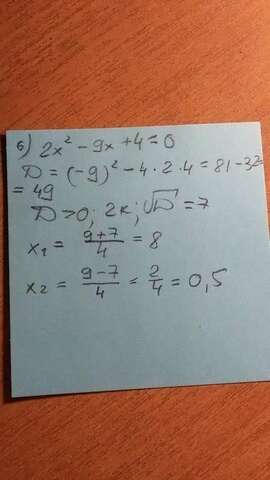 б) 2x² - 9x + 4 = 0
D = (-9)² - 4 · 2 · 4 = 81 - 32 =
= 49
D > 0; 2к; √D = 7
x₁ = (9+7)/4 = 8
x₂ = (9-7)/4 = 2/4 = 0,5